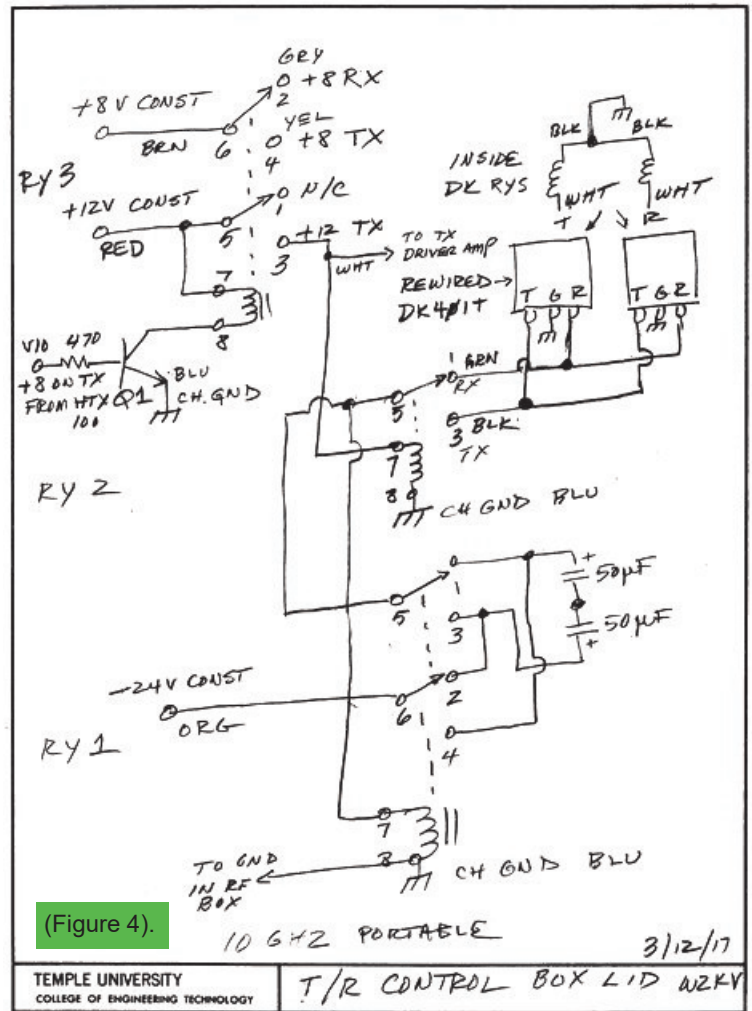 GRY
+8 RX
2
+8 V CONST
BRN
6
YEL
+8 TX
4
RY 3
+12V CONST
RED
5
N/C
1
+12 TX
3
WHT
TO TX
DRIVER AMP
7
8
V10 470
+8 ON TX
FROM HTX
100
Q1
BLU
CH. GND
BLK
BLK
INSIDE
DK RYS
WHT
WHT
T
R
REWIRED
DK401T
T G R
T G R
1 GRN
RX
5
3 BLK
TX
7
8
CH GND BLU
RY 2
5
1
3
+
50µF
50µF
+
-24V CONST
ORG
6
2
4
RY 1
7
8
CH GND BLU
TO GND
IN RF
BOX
(Figure 4).
10 GHZ PORTABLE
3/12/17
TEMPLE UNIVERSITY
COLLEGE OF ENGINEERING TECHNOLOGY
T/R CONTROL BOX LID W2KV